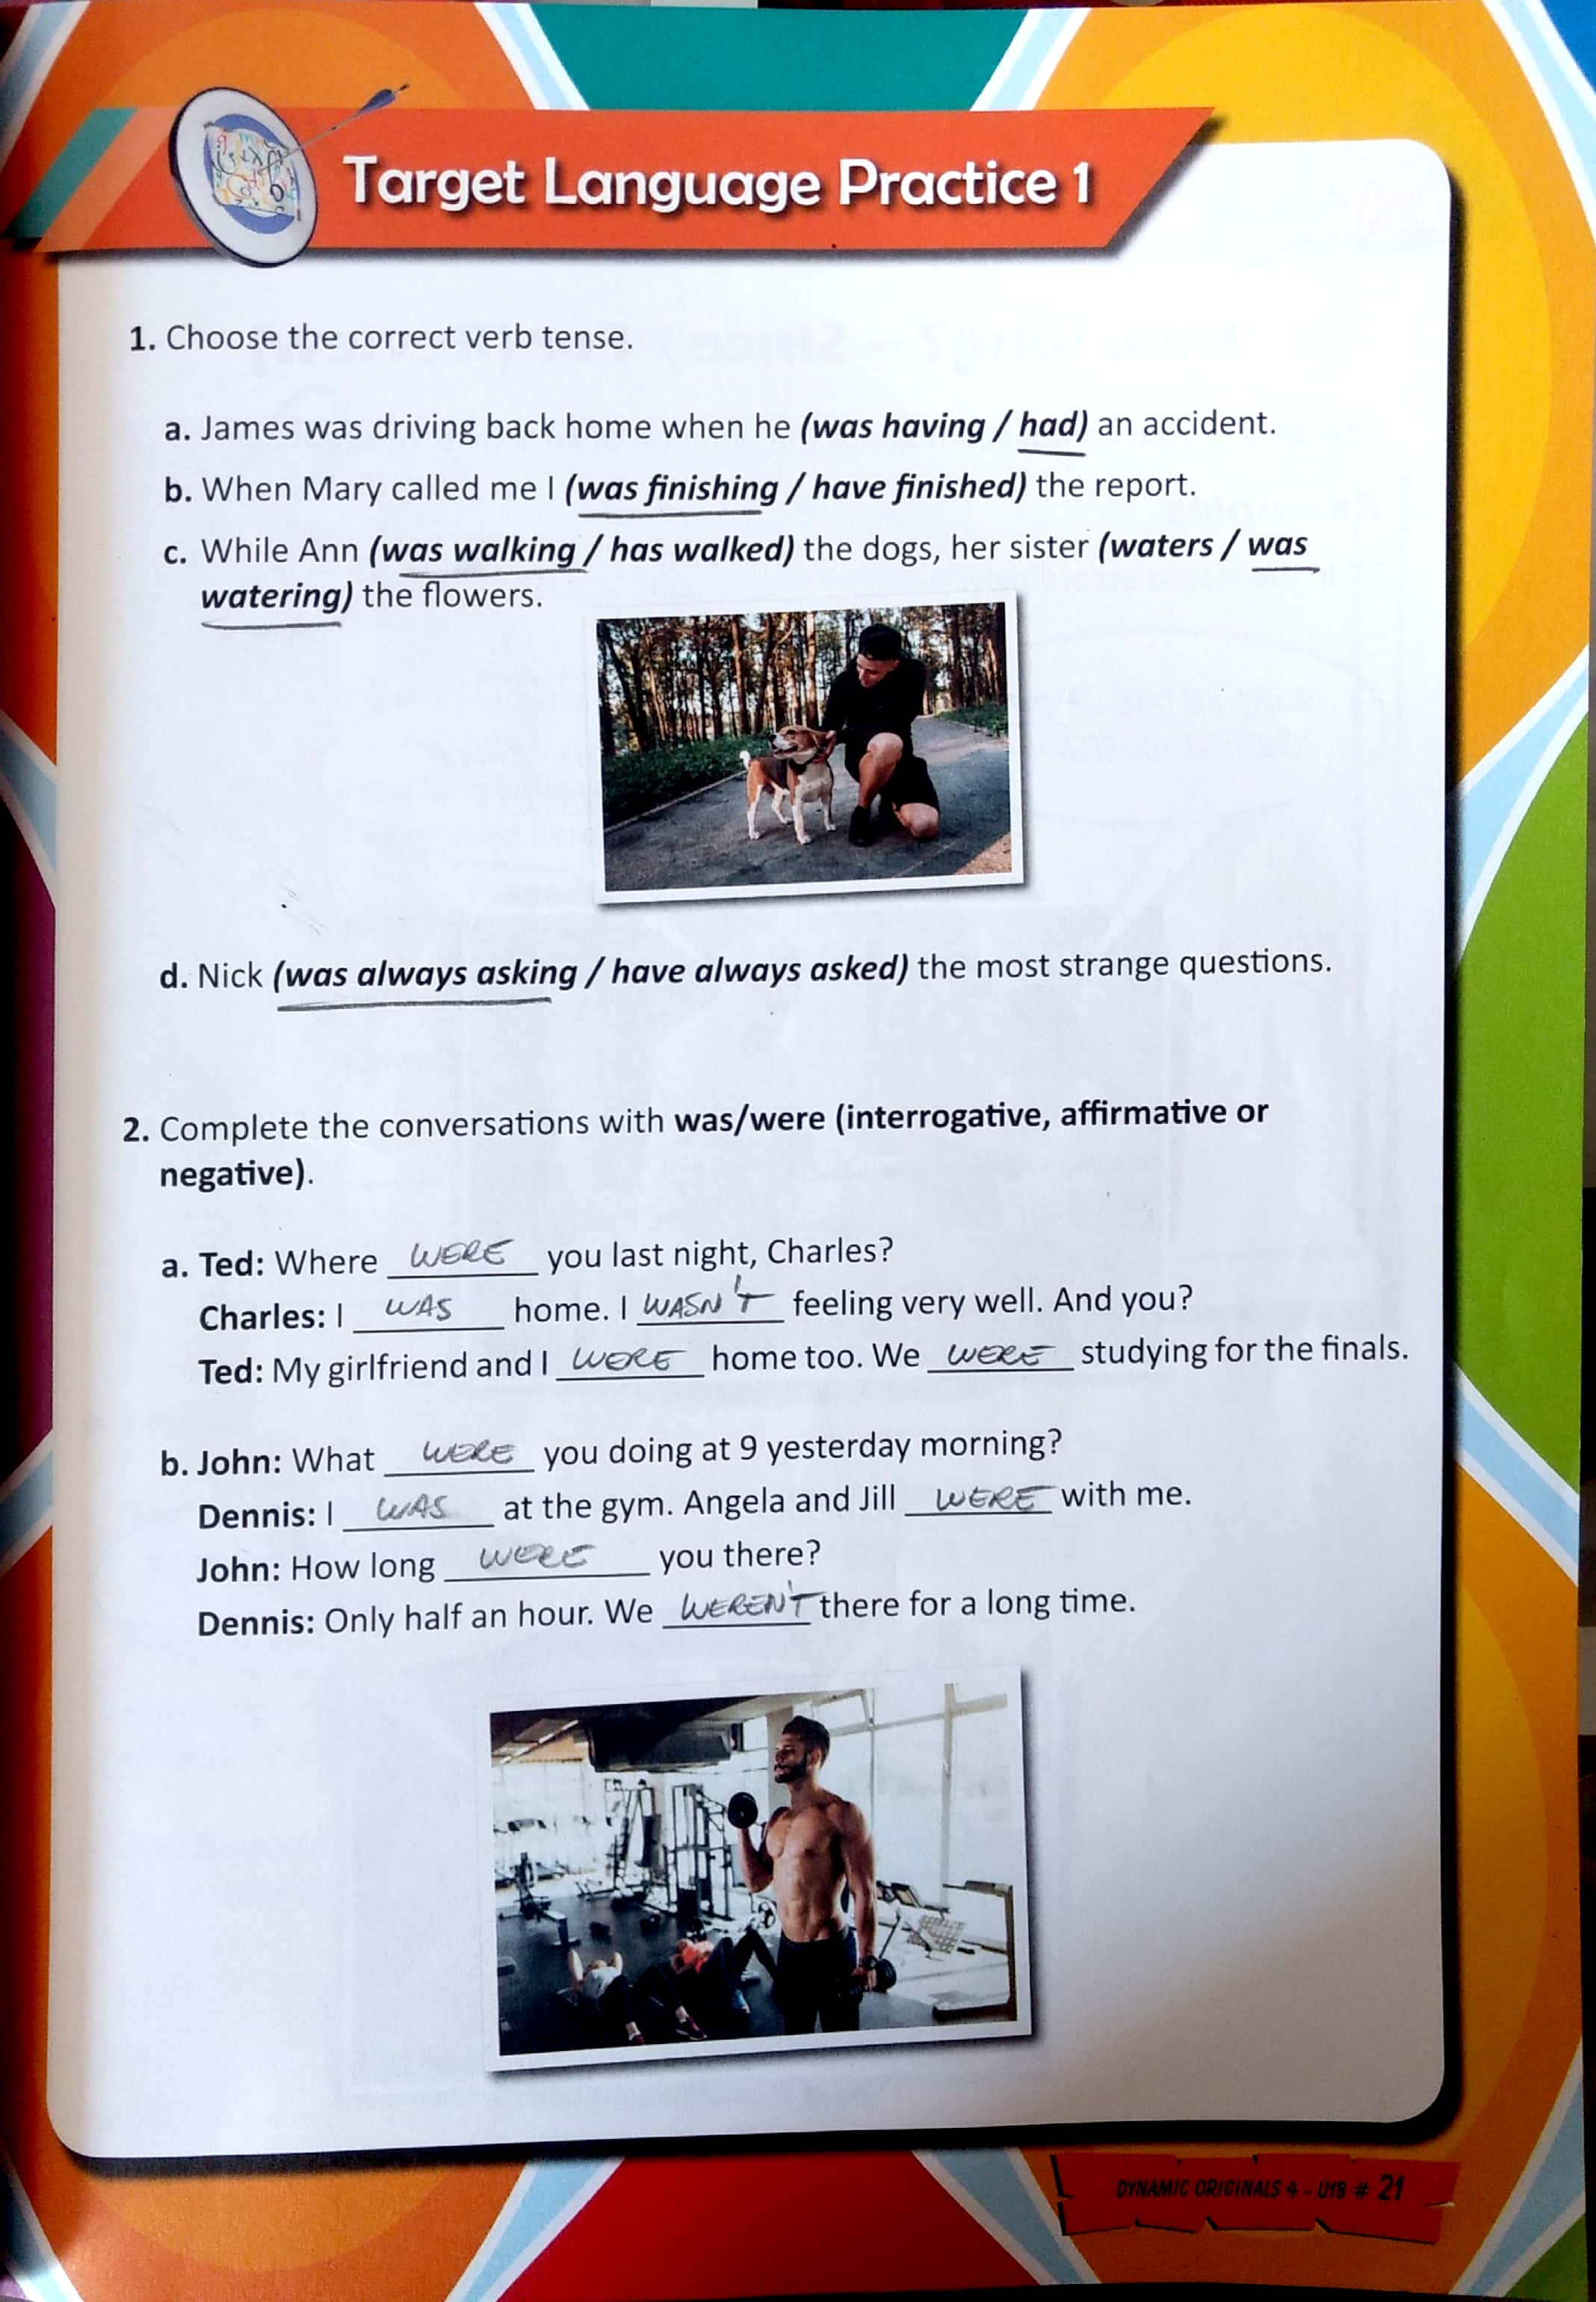 Target Language Practice 1
1. Choose the correct verb tense.
a. James was driving back home when he (was having / had) an accident.
b. When Mary called me I (was finishing / have finished) the report.
c. While Ann (was walking / has walked) the dogs, her sister (waters / was
watering) the flowers.
d. Nick (was always asking / have always asked) the most strange questions.
2. Complete the conversations with was/were (interrogative, affirmative or
negative).
a. Ted: Where WERE you last night, Charles?
Charles: I WAS home. I WASN'T feeling very well. And you?
Ted: My girlfriend and I WERE home too. We WERE studying for the finals.
b. John: What WERE you doing at 9 yesterday morning?
Dennis: I WAS at the gym. Angela and Jill WERE with me.
John: How long WERE you there?
Dennis: Only half an hour. We WEREN'T there for a long time.
DYNAMIC ORIGINALS 4 - U18 # 21